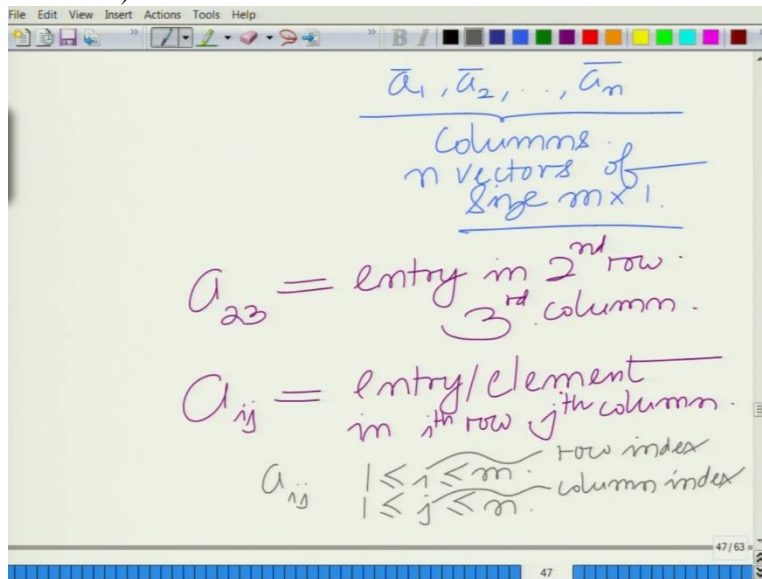 File Edit View Insert Actions Tools Help
ā₁, ā₂, . . , āₙ
Columns.
n vectors of
Size m×1.
a₂₃ = entry in 2nd row.
3rd column.
aᵢⱼ = entry/element
in ith row jth column.
aᵢⱼ 1 ≤ i ≤ m. row index
1 ≤ j ≤ n. column index
47/63
47